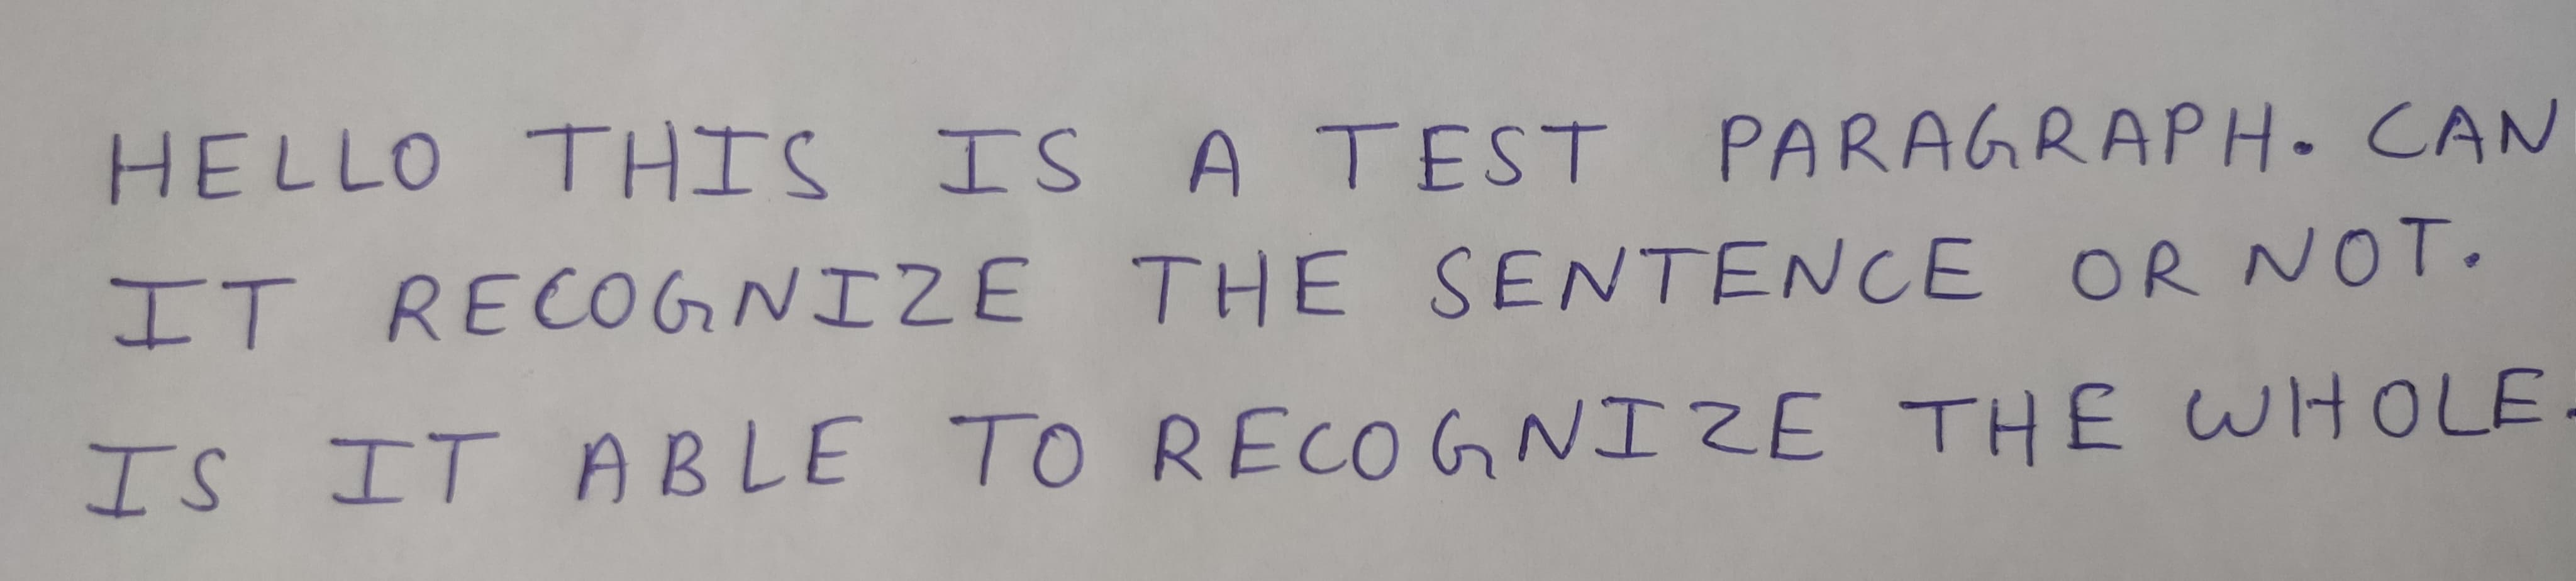 HELLO THIS IS A TEST PARAGRAPH. CAN
IT RECOGNIZE THE SENTENCE OR NOT.
IS IT ABLE TO RECOGNIZE THE WHOLE.